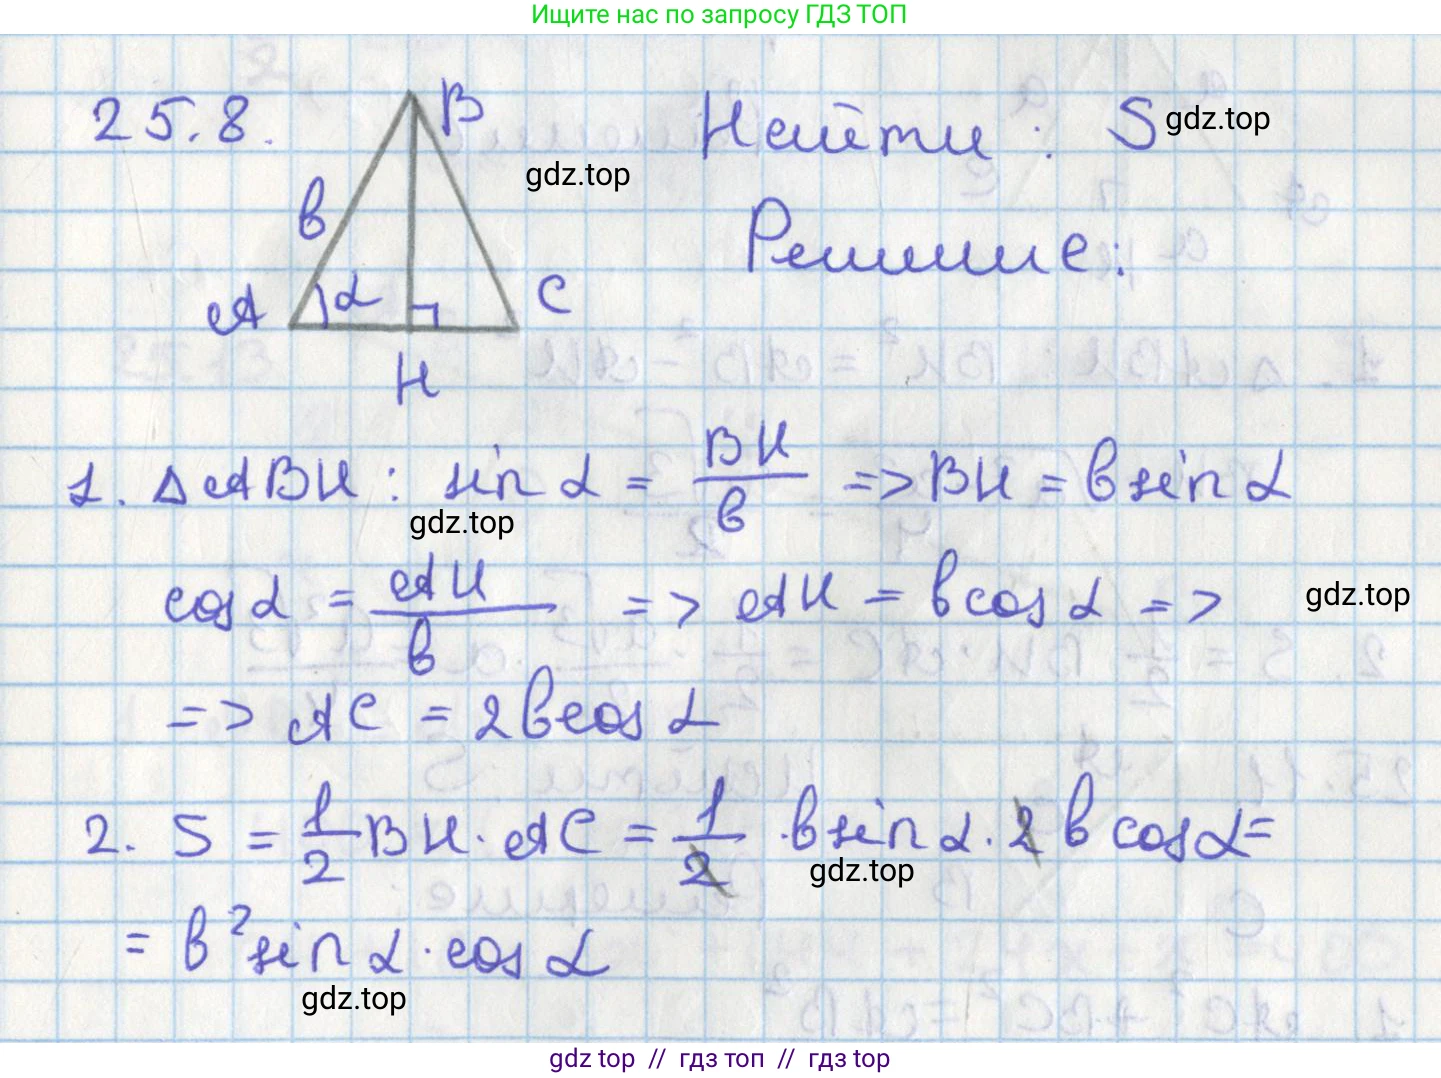 Ищите нас по запросу ГДЗ ТОП
25.8.
B
Найти : S
gdz.top
gdz.top
b
Решение:
A
α
C
H
1. △ABH : sin α = BH/b => BH = b sin α
gdz.top
cos α = AH/b => AH = b cos α =>
gdz.top
=> AC = 2b cos α
2. S = 1/2 BH · AC = 1/2 · b sin α · 2 b cos α =
gdz.top
= b² sin α · cos α
gdz.top
gdz top // гдз топ // гдз top